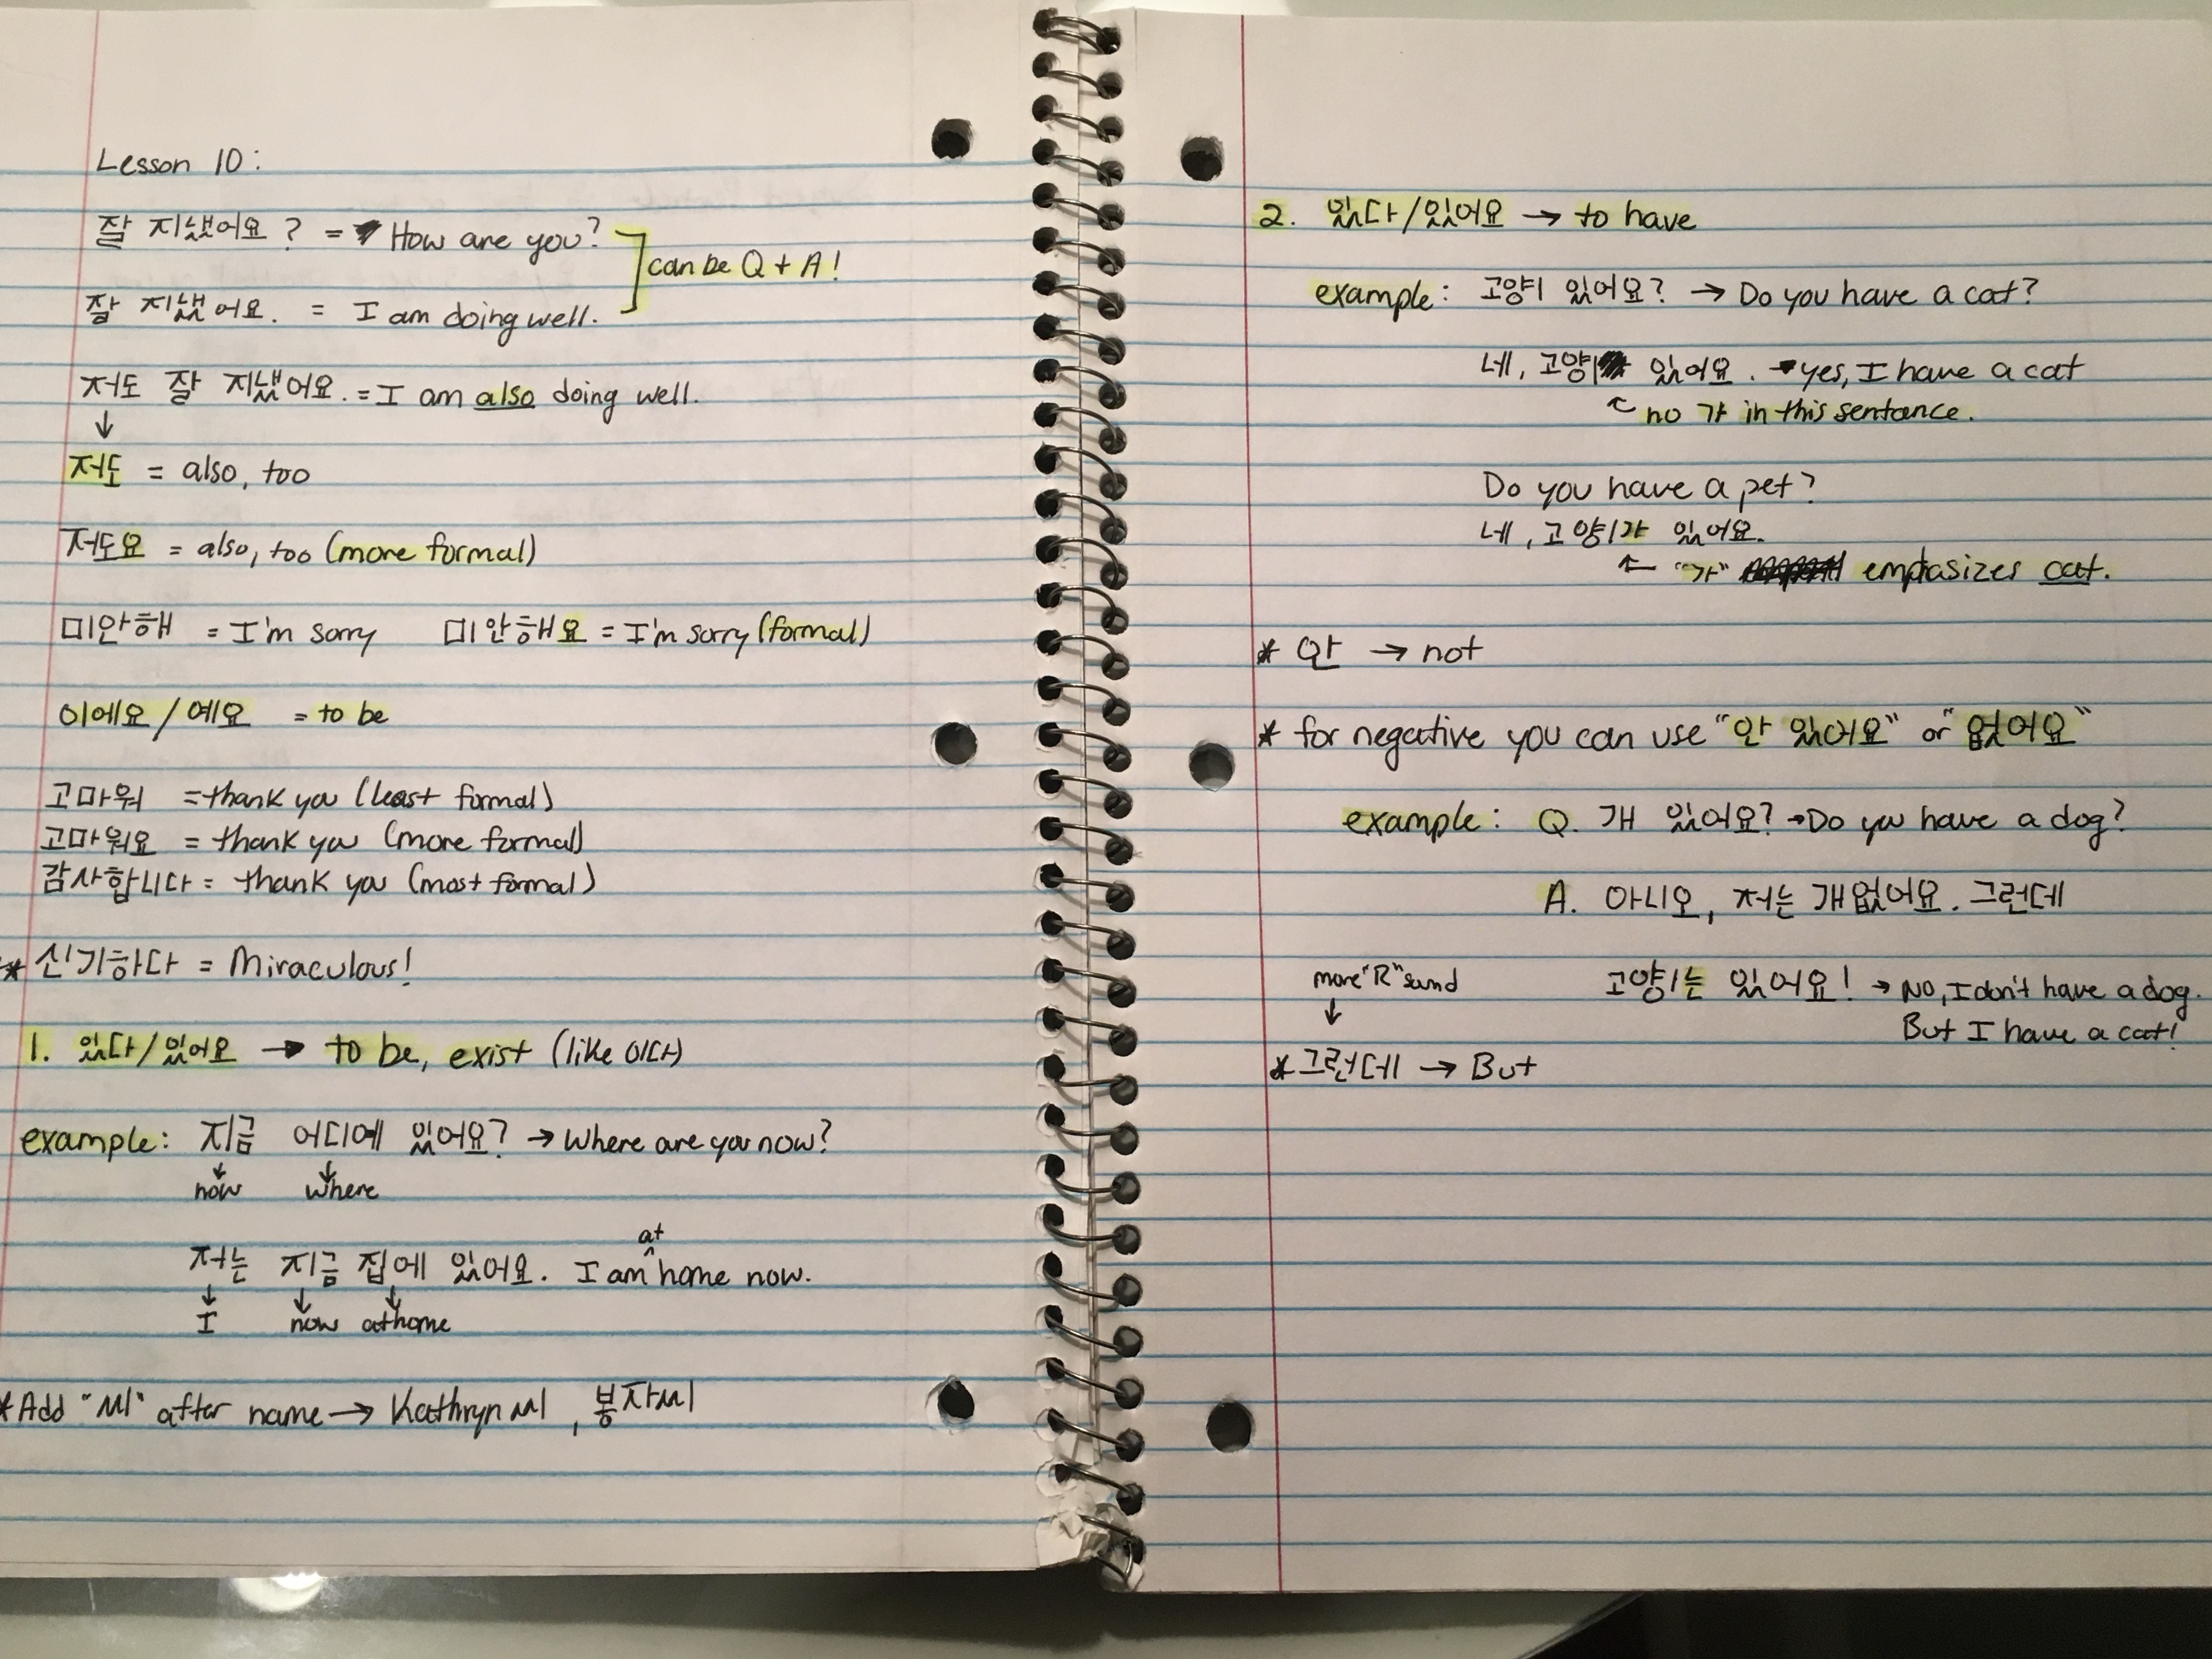 Lesson 10:
잘 지냈어요? = How are you?
can be Q + A!
잘 지냈어요. = I am doing well.
저도 잘 지냈어요. = I am also doing well.
↓
저도 = also, too
저도요 = also, too (more formal)
미안해 = I'm sorry 미안해요 = I'm sorry (formal)
이에요 / 예요 = to be
고마워 = thank you (least formal)
고마워요 = thank you (more formal)
감사합니다 = thank you (most formal)
* 신기하다 = Miraculous!
1. 있다/있어요 → to be, exist (like 이다)
example: 지금 어디에 있어요? → Where are you now?
↓ ↓
now where
저는 지금 집에 있어요. I am at home now.
↓ ↓ ↓
I now at home
* Add "씨" after name → Kathryn 씨, 봉자씨
2. 있다/있어요 → to have
example: 고양이 있어요? → Do you have a cat?
네, 고양이 있어요. → yes, I have a cat
↖ no 가 in this sentance.
Do you have a pet?
네, 고양이가 있어요.
← "가" emphasizes cat.
* 안 → not
* for negative you can use "안 있어요" or "없어요"
example: Q. 개 있어요? → Do you have a dog?
A. 아니오, 저는 개없어요. 그런데
고양이는 있어요! → No, I don't have a dog.
But I have a cat!
more "R" sound
↓
* 그런데 → But